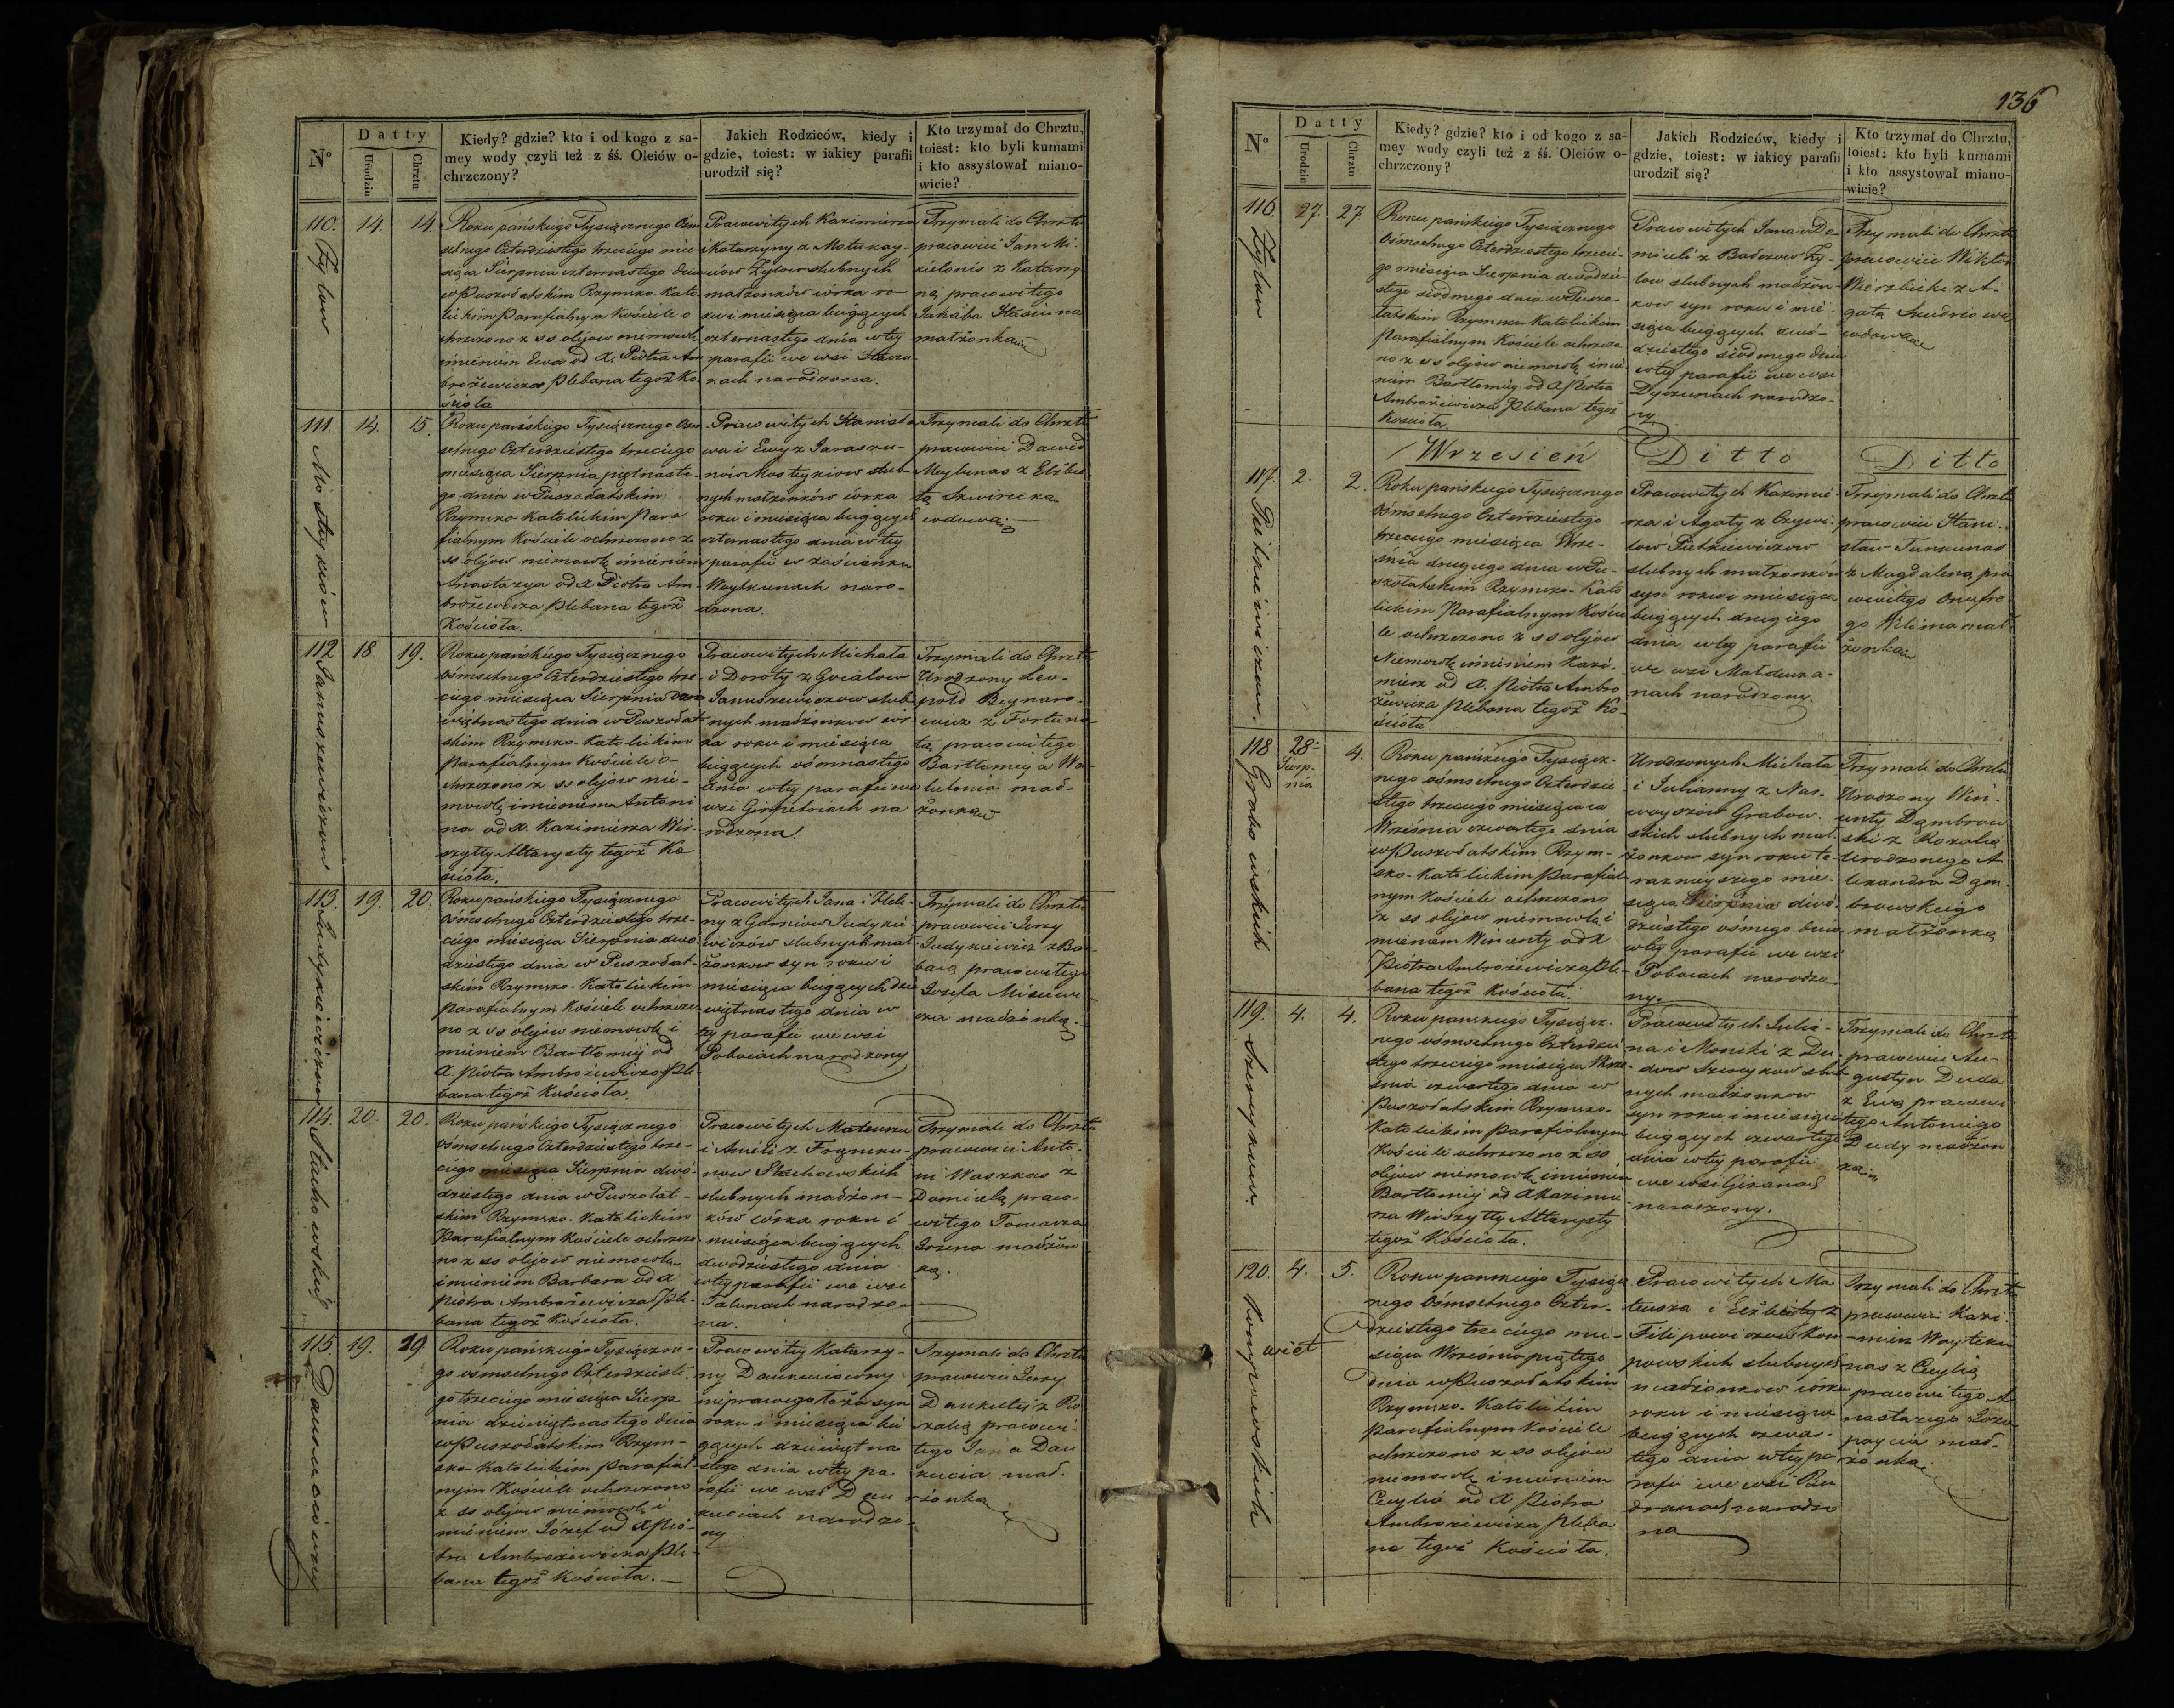 136
N°
Datty
Urodzin
Chrztu
Kiedy? gdzie? kto i od kogo z sa-
mey wody czyli też z śś. Oleiów o-
chrzczony?
Jakich Rodziców, kiedy i
gdzie, toiest: w iakiey parafii
urodził się?
Kto trzymał do Chrztu,
toiest: kto byli kumami
i kto assystował miano-
wicie?
110.
Zylow
14.
14.
Roku pańskiego Tysiącznego Ośm
setnego Czterdziestego trzeciego mie-
siąca Sierpnia czternastego dnia
w Puszołatskim Rzymsko-Kato
lickim Parafialnym Kościele o
chrzczono z ss olejow niemowle
imieniem Ewa od X. Piotra Am
brożewicza Plebana tegoż Ko
ścioła
Pracowitych Kazimierza
i Katarzyny z Matukay-
Zylow slubnych
małżonków córka ro
ku i miesiąca bieżących
czternastego dnia w tey
parafii we wsi
nach narodzona.
Trzymali do Chrztu
pracowici Jan Mi-
kielonis z Katarzy
ną pracowitego
Jakóba Stasiuna
małżonką
111.
14.
15.
Roku pańskiego Tysiącznego Ośm
setnego Czterdziestego trzeciego
miesiąca Sierpnia piętnaste
go dnia w Puszołatskim
Rzymsko-Katolickim Para
fialnym Kościele ochrzczono z
ss olejow niemowle imieniem
Anastazya od X Piotra Am-
brożewicza Plebana tegoż
Kościoła.
Pracowitych Stanisła
wa i Ewy z Jaraszu-
nów slub
nych małżonków córka
roku i miesiąca bieżących
czternastego dnia w tey
parafii w zaścianku
Woytkunach naro-
dzona.
Trzymali do Chrztu
pracowici Dawid
Meylunas z Elżbie
tą
wdową
112
Januszewiczow
18
19.
Roku pańskiego Tysiącznego
Ośmsetnego Czterdziestego trze
ciego miesiąca Sierpnia
więtnastego dnia w Puszołat
skim Rzymsko-Katolickim
Parafialnym Kościele o-
chrzczono z ss olejow nie-
mowle imieniem Antoni
na od X. Kazimierza Wir-
szytły Altarysty tegoż Ko
ścioła.
Pracowitych Michała
i Doroty z
Januszewiczow slub
nych małżonkow cór
ka roku i miesiąca
bieżących ośmnastego
dnia w tey parafii we
wsi na
rodzona.
Trzymali do Chrztu
Urodzony Leo-
pold Beynaro-
wicz z Fortuna
tą pracowitego
Bartłomeya
mał-
żonką
113.
Judykiewiczow
19.
20.
Roku pańskiego Tysiącznego
Ośmsetnego Czterdziestego trze-
ciego miesiąca Sierpnia dwó
dziestego dnia w Puszołat-
skim Rzymsko-Katolickim
Parafialnym Kościele ochrzczo
no z ss olejow niemowle i
mieniem Bartłomiej od
X. Piotra Ambrożewicza Ple
bana tegoż Kościoła.
Pracowitych Jana i Hele-
ny z Garniow Judykie
wiczów slubnych mał
żonkow syn roku i
miesiąca bieżących dzie
więtnastego dnia w
tey parafii we wsi
Pobociach narodzony
Trzymali do Chrztu
pracowici Jerzy
Judykiewicz z Bar
barą pracowitego
Jozefa Misiewi
cza małżonką.
114.
Stachowskich
20.
20.
Roku pańskiego Tysiącznego
Ośmsetnego Czterdziestego trze-
ciego miesiąca Sierpnia dwó-
dziestego dnia w Puszołat-
skim Rzymsko-Katolickim
Parafialnym Kościele ochrzczo
no z ss olejow niemowle
imieniem Barbara od X
Piotra Ambrożewicza Ple-
bana tegoż Kościoła.
Pracowitych Mateusza
i Anieli z
now Stachowskich
slubnych małżon-
ków córka roku i
miesiąca bieżących
dwódziestego dnia
w tey parafii we wsi
Talunach narodzo
na.
Trzymali do Chrztu
pracowici Anto-
ni Waszkas z
Domicelą praco-
witego Tomasza
małżon
ką.
115.
19.
19
Roku pańskiego Tysiączne-
go ośmsetnego Czterdzieste
go trzeciego miesiąca Sierp
nia dziewiętnastego dnia
w Puszołatskim Rzym-
sko-Katolickim parafial
nym Kościele ochrzczono
z ss olejow niemowle i
mieniem Józef od X Pio-
tra Ambrożewicza Ple-
bana tegoż Kościoła.
Pracowitey Katarzy-
ny
nieprawego łoża syn
roku i miesiąca bie
żących dziewiętna
stego dnia w tey pa-
rafii we wsi Dau
kuciach narodzo-
ny
Trzymali do Chrztu
pracowici Jerzy
z Ro
zalią pracowi-
tego Jana Dau
kucia mał-
żonką
N°
Datty
Urodzin
Chrztu
Kiedy? gdzie? kto i od kogo z sa-
mey wody czyli też z śś. Oleiów o-
chrzczony?
Jakich Rodziców, kiedy i
gdzie, toiest: w iakiey parafii
urodził się?
Kto trzymał do Chrztu,
toiest: kto byli kumami
i kto assystował miano-
wicie?
116.
Zylow
27.
27.
Roku pańskiego Tysiącznego
Ośmsetnego Czterdziestego trzecie-
go miesiąca Sierpnia dwódzie
stego siódmego dnia w Puszo
łatskim Rzymsko-Katolickim
Parafialnym Kościele ochrzczo
no z ss olejow niemowle imie
niem Bartłomiej od X Piotra
Ambrożewicza Plebana tegoż
Kościoła.
Pracowitych Jana i Do-
miceli z Zy-
low slubnych małżon-
kow syn roku i mie
siąca bieżących dwó-
dziestego siódmego dnia
w tey parafii we wsi
narodzo-
ny.
Trzymali do Chrztu
pracowici Wiktor
Wierzbicki z A-
gatą
wdową
Wrzesień
Ditto
Ditto
117.
Pietkiewiczow.
2.
2.
Roku pańskiego Tysiącznego
Ośmsetnego Czterdziestego
trzeciego miesiąca Wrze-
śnia drugiego dnia w Pu-
szołatskim Rzymsko-Kato
lickim Parafialnym Koście
le ochrzczono z ss olejow
Niemowle imieniem Kazi-
mierz od X. Piotra Ambro
żewicza Plebana tegoż Ko-
ścioła.
Pracowitych Kazimie-
rza i Agaty z
low Pietkiewiczow
slubnych małżonków
syn roku i miesiąca
bieżących drugiego
dnia w tey parafii
we wsi
nach narodzony.
Trzymali do Chrztu
pracowici Stani-
sław
z Magdaleną pra
cowitego Onufre
go mał
żonką
118
Grabowskich
28-
Sierp-
nia
4.
Roku pańskiego Tysiącz-
nego ośmsetnego Czterdzie
stego trzeciego miesiąca
Września czwartego dnia
w Puszołatskim Rzym-
sko-Katolickim Parafial
nym Kościele ochrzczono
z ss olejow niemowle i
mieniem Wincenty od X
Piotra Ambrożewicza Ple-
bana tegoż Kościoła.
Urodzonych Michała
i Julianny z Nar-
woyszów Grabow-
skich slubnych mał-
żonkow syn roku te-
raznieyszego mie-
siąca Sierpnia dwó-
dziestego ośmego dnia
w tey parafii we wsi
Pobociach narodzo
ny.
Trzymali do Chrztu
Urodzony Win-
centy Dąmbrow
ski z Rozalią
Urodzonego A
lexandra Dąm-
browskiego
małżonką
119.
4.
4.
Roku pańskiego Tysiącz-
nego ośmsetnego Czterdzie
stego trzeciego miesiąca Wrze-
śnia czwartego dnia w
Puszołatskim Rzymsko-
Katolickim Parafialnym
Kościele ochrzczono z ss
olejow niemowle imieniem
Bartłomiej od X Kazimie-
rza Wirszytły Altarysty
tegoż Kościoła.
Pracowitych Julia-
na i Moniki z Du-
dow slub-
nych małżonkow
syn roku i miesiąca
bieżących czwartego
dnia w tey parafii
we wsi Giranach
narodzony.
Trzymali do Chrztu
pracowici Au-
gustyn Duda
z Ewą pracowi
tego Antoniego
Dudy małżon
ką
120.
4.
5.
Roku pańskiego Tysiącz
nego Ośmsetnego Czter-
dziestego trzeciego mie-
siąca Września piątego
dnia w Puszołatskim
Rzymsko-Katolickim
Parafialnym Kościele
ochrzczono z ss olejow
niemowle imieniem
Cecylia od X Piotra
Ambrożewicza Pleba
na tegoż Kościoła.
Pracowitych Ma
teusza i Elżbiety z
Filipowiczow
slubnych
małżonkow córka
roku i miesiąca
bieżących czwar-
tego dnia w tey pa-
rafii we wsi
narodzo
na
Trzymali do Chrztu
pracowici Kazi-
mierz Woyteku
nas z Cecylią
pracowitego A
nastazego
mał-
żonką